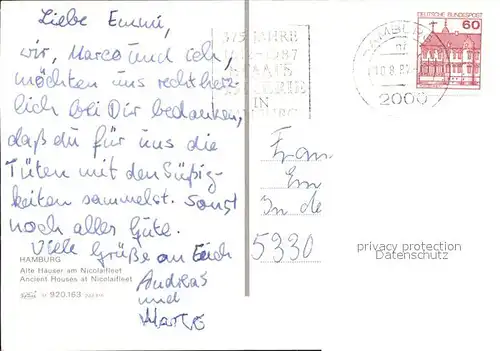 Liebe Emmi,
wir, Marco und ich,
möchten uns recht herz-
lich bei Dir bedanken,
daß du für uns die
Tüten mit den Süßig-
keiten sammelst. Sonst
noch alles Gute.
Viele Grüße an Euch
Andreas
und
Marco
HAMBURG
Alte Häuser am Nicolaifleet
Ancient Houses at Nicolaifleet
920.163
375 JAHRE
1987
STAATS
LOTTERIE
IN
HAMBURG
HAMBURG
10.8.87
2000
DEUTSCHE BUNDESPOST
60
Frau
Em
In de
5330
privacy protection
Datenschutz